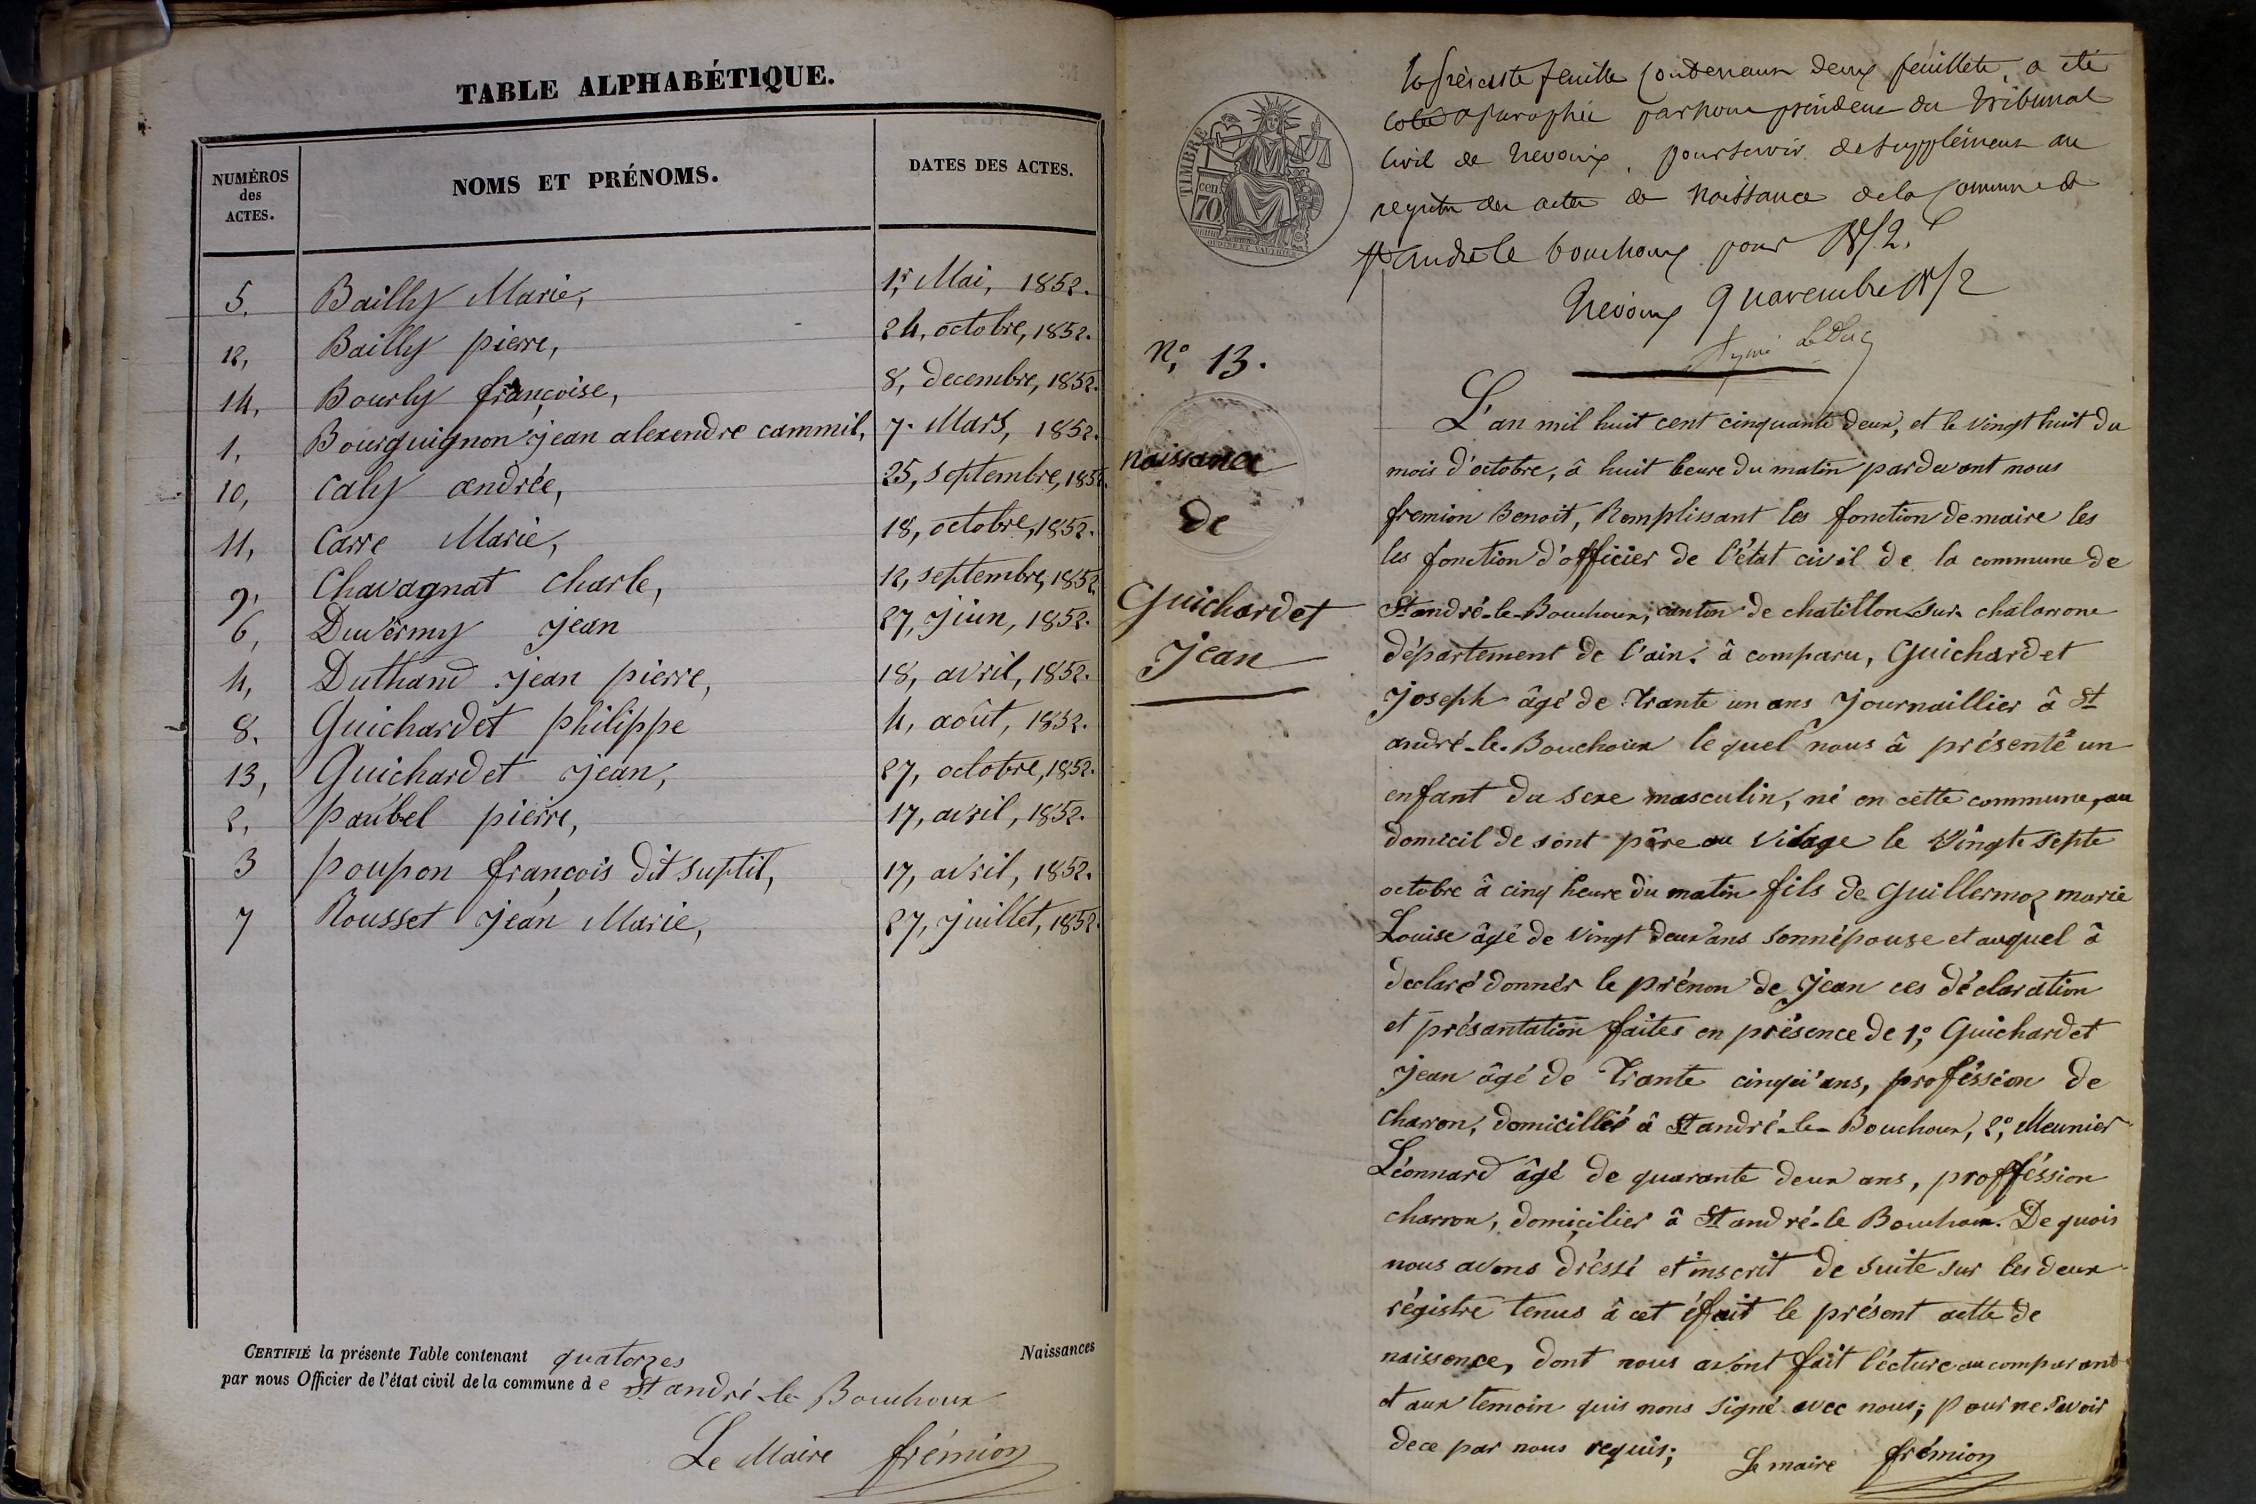 TABLE ALPHABÉTIQUE.
NUMÉROS des ACTES. NOMS ET PRÉNOMS. DATES DES ACTES.
5. Bailly Marie, 1r, Mai, 1852.
12, Bailly pierre, 24, octobre, 1852.
14, Bourly françoise, 8, decembre, 1852.
1, Bourguignon jean alexendre cammil, 7. Mars, 1852.
10, Caly andrée, 25, septembre, 1852.
11, Carre Marie, 18, octobre, 1852.
9, Chavagnat Charle, 12, septembre, 1852
6, Duvermy jean 27, juin, 1852.
4, Duthand jean pierre, 18, avril, 1852.
8. Guichardet philippe 4, août, 1852.
13, Guichardet jean, 27, octobre, 1852.
2, paubel pierre, 17, avril, 1852.
3 poupon françois dit suptil, 17, avril, 1852.
7 Rousset jean Marie, 27, juillet, 1852.
CERTIFIÉ la présente Table contenant quatorzes Naissances
par nous Officier de l'état civil de la commune de St andré-le-Bouchoux
Le Maire frémion
TIMBRE
70 cen
la présente feuille contenant deux feuillets, a été
coté & paraphée par nous président du tribunal
Civil de Trevoux, pour servir de supplément au
registre des actes de Naissance de la Commune de
St andré le bouchoux pour 1852.
Trévoux 9 novembre 1852
N°. 13.
naissance
de
Guichardet
Jean
L'an mil huit cent cinquante deux, et le vingt huit du
mois d'octobre, â huit heure du matin pardevant nous
fremion Benoit, Remplissant les fonction de maire les
les fonction d'officier de l'état civil de la commune de
St andré-le-Bouchoux, canton de chatillon sur chalarone
département de l'ain. â comparu, Guichardet
joseph âgé de Trante un ans journaillier â St
andré-le-Bouchoux le quel nous â présenté un
enfant du sexe masculin, né en cette commune, au
domicil de sont père au vilage le vingte septe
octobre â cinq heure du matin fils de Guillermoz marie
Louise âgé de vingt deux ans sonnépouse et auquel â
declaré donnér le prénon de jean ces déclaration
et présantation faites en présence de 1°; Guichardet
jean âgé de Trante cinqu'ans, proféssion de
charon, domicillié â St andré-le-Bouchoux, 2°, Meunier
Léonnard âgé de quarante deux ans, professsion
charron, domicilier â St andré-le Bouchoux. De quois
nous avons dréssé et inscrit de suite sur les deux
régistre tenus â cet éffait le présent actte de
naissence, dont nous avont fait lécture au comparant
et aux temoin quis nons signé avec nous; pour ne savoir
dece par nous requis; Le maire frémion